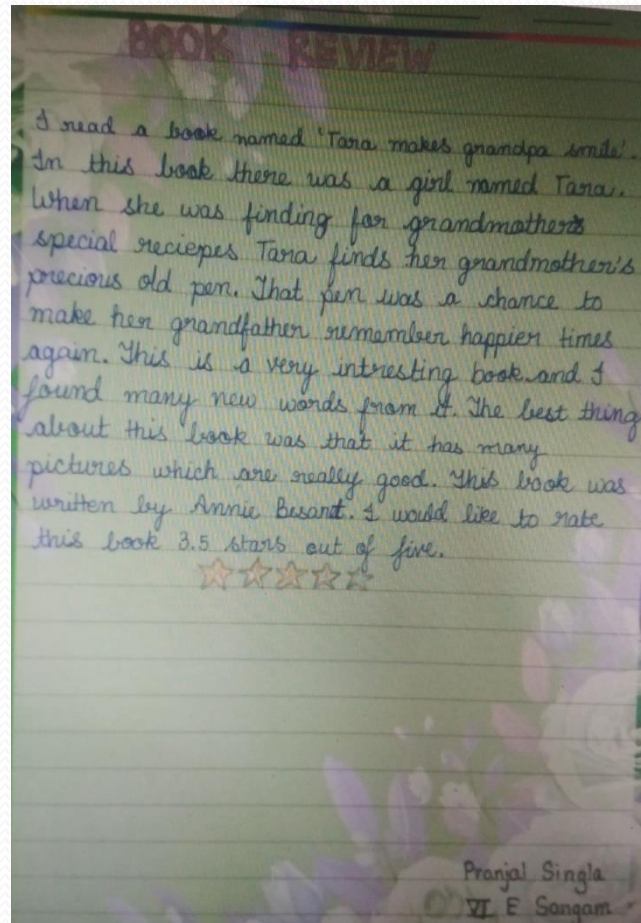 BOOK REVIEW
I read a book named 'Tara makes grandpa smile'.
In this book there was a girl named Tara.
When she was finding for grandmother's
special reciepes Tara finds her grandmother's
precious old pen. That pen was a chance to
make her grandfather remember happier times
again. This is a very intresting book and I
found many new words from it. The best thing
about this book was that it has many
pictures which are really good. This book was
written by Annie Besant. I would like to rate
this book 3.5 stars out of five.
Pranjal Singla
VI E Sangam